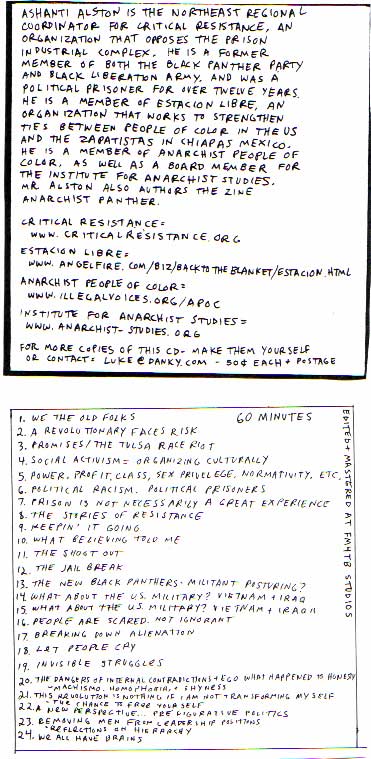 ASHANTI ALSTON IS THE NORTHEAST REGIONAL
COORDINATOR FOR CRITICAL RESISTANCE, AN
ORGANIZATION THAT OPPOSES THE PRISON
INDUSTRIAL COMPLEX. HE IS A FORMER
MEMBER OF BOTH THE BLACK PANTHER PARTY
AND BLACK LIBERATION ARMY, AND WAS A
POLITICAL PRISONER FOR OVER TWELVE YEARS.
HE IS A MEMBER OF ESTACION LIBRE, AN
ORGANIZATION THAT WORKS TO STRENGTHEN
TIES BETWEEN PEOPLE OF COLOR IN THE US
AND THE ZAPATISTAS IN CHIAPAS MEXICO.
HE IS A MEMBER OF ANARCHIST PEOPLE OF
COLOR, AS WELL AS A BOARD MEMBER FOR
THE INSTITUTE FOR ANARCHIST STUDIES.
MR. ALSTON ALSO AUTHORS THE ZINE
ANARCHIST PANTHER.
CRITICAL RESISTANCE=
WWW.CRITICALRESISTANCE.ORG
ESTACION LIBRE=
WWW.ANGELFIRE.COM/BIZ/BACKTOTHEBLANKET/ESTACION.HTML
ANARCHIST PEOPLE OF COLOR=
WWW.ILLEGALVOICES.ORG/APOC
INSTITUTE FOR ANARCHIST STUDIES=
WWW.ANARCHIST-STUDIES.ORG
FOR MORE COPIES OF THIS CD- MAKE THEM YOURSELF
OR CONTACT= LUKE@DANKY.COM - 50¢ EACH + POSTAGE
60 MINUTES
1. WE THE OLD FOLKS
2. A REVOLUTIONARY FACES RISK
3. PROMISES/THE TULSA RACE RIOT
4. SOCIAL ACTIVISM= ORGANIZING CULTURALLY
5. POWER, PROFIT, CLASS, SEX PRIVELEGE, NORMATIVITY, ETC.
6. POLITICAL RACISM. POLITICAL PRISONERS
7. PRISON IS NOT NECESSARILY A GREAT EXPERIENCE
8. THE STORIES OF RESISTANCE
9. KEEPIN' IT GOING
10. WHAT BELIEVING TOLD ME
11. THE SHOOT OUT
12. THE JAIL BREAK
13. THE NEW BLACK PANTHERS- MILITANT POSTURING?
14. WHAT ABOUT THE U.S. MILITARY? VIETNAM + IRAQ
15. WHAT ABOUT THE U.S. MILITARY? VIETNAM + IRAQ II
16. PEOPLE ARE SCARED. NOT IGNORANT
17. BREAKING DOWN ALIENATION
18. LET PEOPLE CRY
19. INVISIBLE STRUGGLES
20. THE DANGERS OF INTERNAL CONTRADICTIONS + EGO WHAT HAPPENED TO HONESY
-MACHISMO, HOMOPHOBIA, + SHYNESS
21. THIS REVOLUTION IS NOTHING IF I AM NOT TRANSFORMING MY SELF
-THE CHANCE TO FREE YOURSELF
22. A NEW PERSPECTIVE... PRE FIGURATIVE POLITICS
23. REMOVING MEN FROM LEADERSHIP POSITIONS
-REFLECTIONS ON HIERARCHY
24. WE ALL HAVE BRAINS
EDITED + MASSTERED AT FMYTB STUDIOS